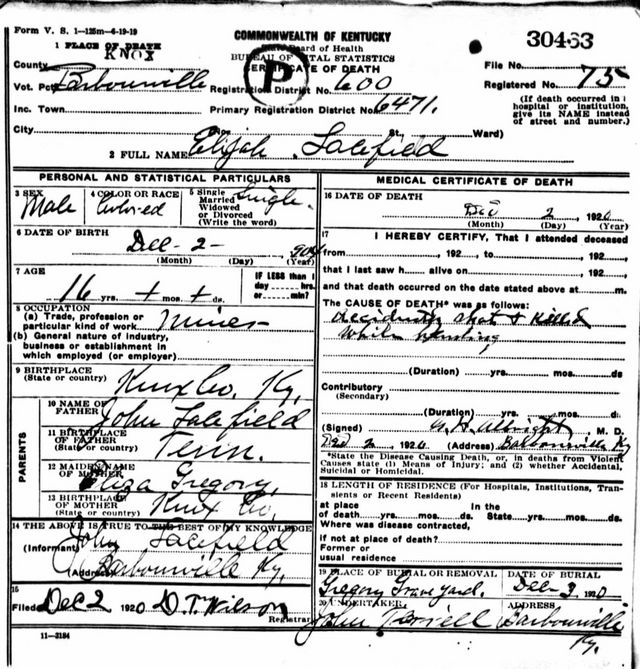 Form V. S. 1—125m—6-19-19
COMMONWEALTH OF KENTUCKY
State Board of Health
BUREAU OF VITAL STATISTICS
CERTIFICATE OF DEATH
30463
1 PLACE OF DEATH
County KNOX
File No.
Vot. Pct. Barbourville
P
Registration District No. 600
Registered No. 75
Inc. Town
Primary Registration District No. 6471.
(If death occurred in a hospital or institution, give its NAME instead of street and number.)
City
Ward)
2 FULL NAME Elijah Lacefield
PERSONAL AND STATISTICAL PARTICULARS
3 SEX Male
4 COLOR OR RACE Colored
5 Single Married Widowed or Divorced (Write the word) Single
6 DATE OF BIRTH
Dec - 2 - 904
(Month) (Day) (Year)
7 AGE
16 yrs. + mos. + ds.
IF LESS than 1 day ..... hrs. or ..... min?
8 OCCUPATION
(a) Trade, profession or particular kind of work Miner
(b) General nature of industry, business or establishment in which employed (or employer)
9 BIRTHPLACE
(State or country) Knox Co. Ky.
PARENTS
10 NAME OF FATHER John Lacefield
11 BIRTHPLACE OF FATHER (State or country) Tenn.
12 MAIDEN NAME OF MOTHER Eliza Gregory
13 BIRTHPLACE OF MOTHER (State or country) Knox Co,
14 THE ABOVE IS TRUE TO THE BEST OF MY KNOWLEDGE
(Informant) John Lacefield
(Address) Barbourville Ky.
15
Filed Dec 2 1920 D. T. Wilson
Registrar
11—3184
MEDICAL CERTIFICATE OF DEATH
16 DATE OF DEATH
Dec 2, 1920
(Month) (Day) (Year)
17 I HEREBY CERTIFY, That I attended deceased
from, 192 to, 192
that I last saw h alive on, 192
and that death occurred on the date stated above at m.
The CAUSE OF DEATH* was as follows:
accidently shot & killed
while hunting
(Duration) yrs. mos. ds
Contributory
(Secondary)
(Duration) yrs. mos. d
(Signed) Albright, M. D.
Dec 2, 1920 (Address) Barbourville Ky
*State the Disease Causing Death, or, in deaths from Violent Causes state (1) Means of Injury; and (2) whether Accidental, Suicidal or Homicidal.
18 LENGTH OF RESIDENCE (For Hospitals, Institutions, Transients or Recent Residents)
at place of death yrs. mos. ds. In the State yrs. mos. ds
Where was disease contracted,
if not at place of death?
Former or
usual residence
19 PLACE OF BURIAL OR REMOVAL
Gregory Graveyard.
DATE OF BURIAL
Dec-3, 1920
20 UNDERTAKER
John
ADDRESS
Barbourville
Ky.